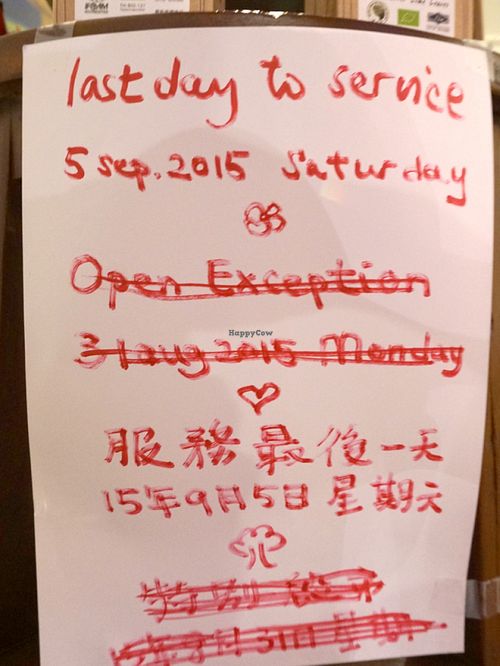 last day to service
5 sep. 2015 Saturday
Open Exception
HappyCow
31 aug 2015 Monday
服務最後一天
15年9月5日星期六